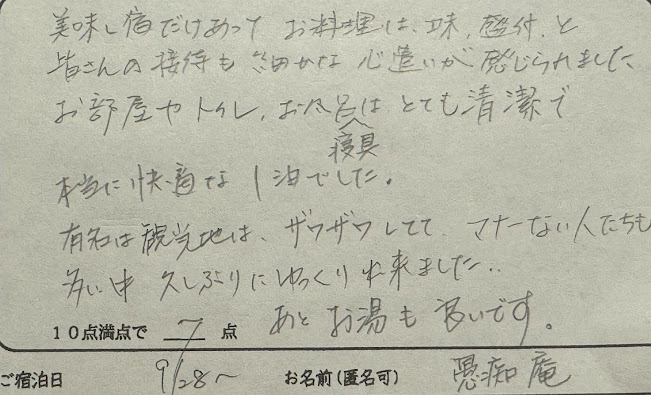 美味し宿だけあって お料理は、味、盛付、と
皆さんの接待も 細かな 心遣いが 感じられました
お部屋やトイレ、お風呂は とても清潔で
寝具
本当に快適な 1泊でした。
有名は観光地は、ザワザワしてて、マナーない人たちも
多い中 久しぶりに ゆっくり 出来ました..
あと お湯も 良いです。
10点満点で 7 点
ご宿泊日 9/28〜 お名前(匿名可) 愚痴庵